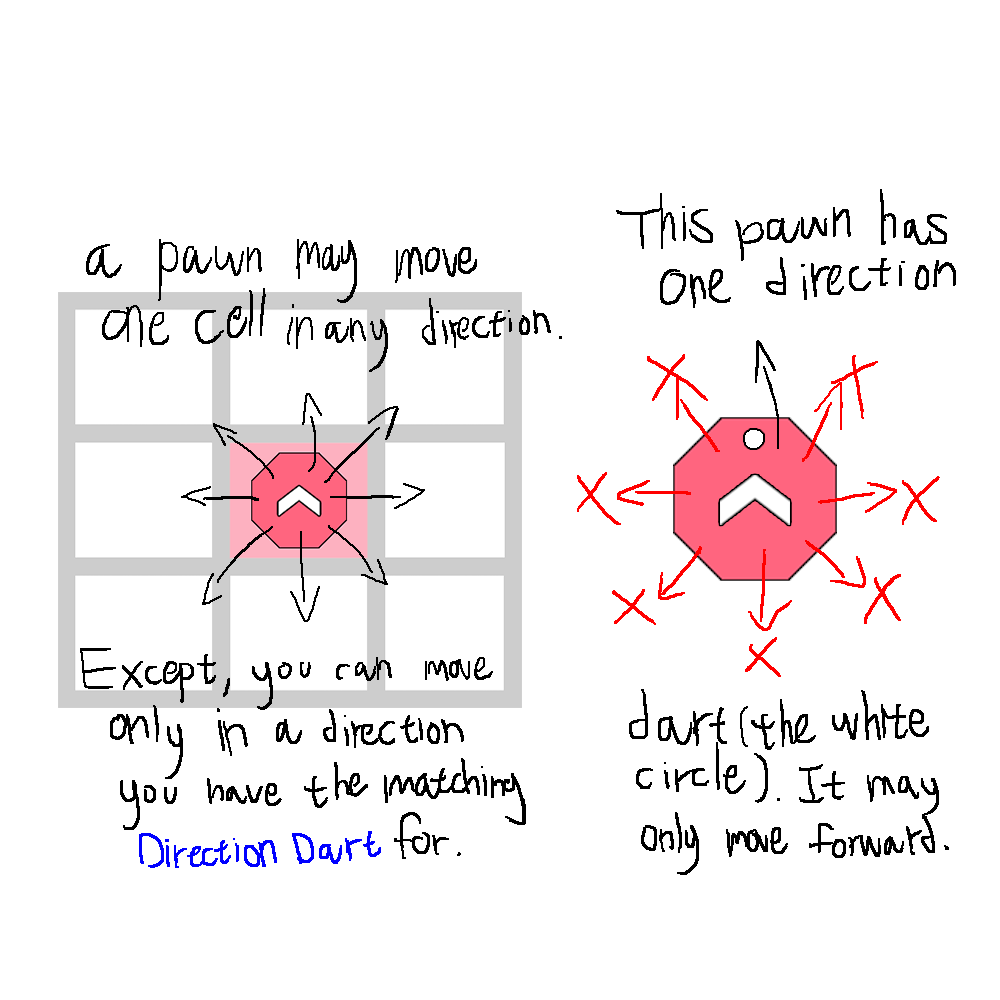 a pawn may move
one cell in any direction.
Except, you can move
only in a direction
you have the matching
Direction Dart for.
This pawn has
one direction
dart (the white
circle). It may
only move forward.